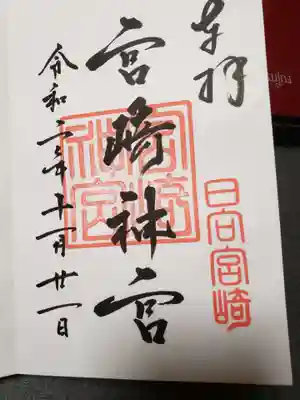 奉拝
日向宮崎
宮崎神宮
宮崎神宮
令和二年十一月廿一日